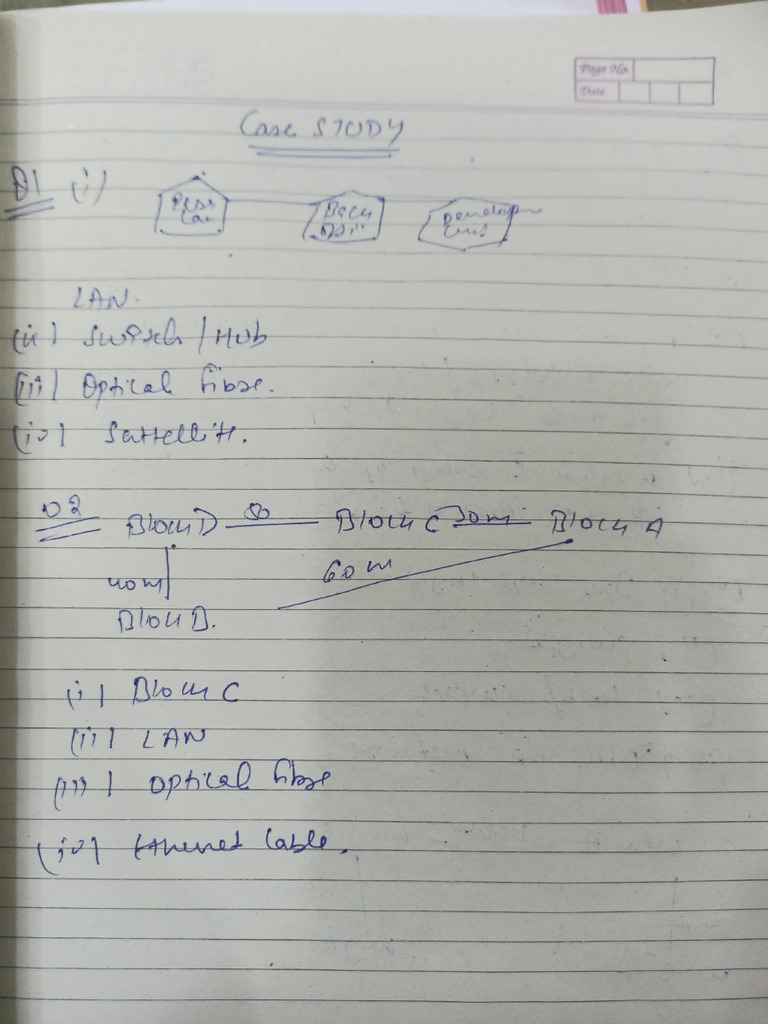 Page No.
Date
Case STUDY
Q1 (i)
LAN.
(ii) Switch / Hub
(iii) Optical fibre.
(iv) Sattellite.
Q2 Block D 50 Block C 30m Block A
40m 60m
Block B.
(i) Block C
(ii) LAN
(iii) Optical fibre
(iv) Ethernet Cable.